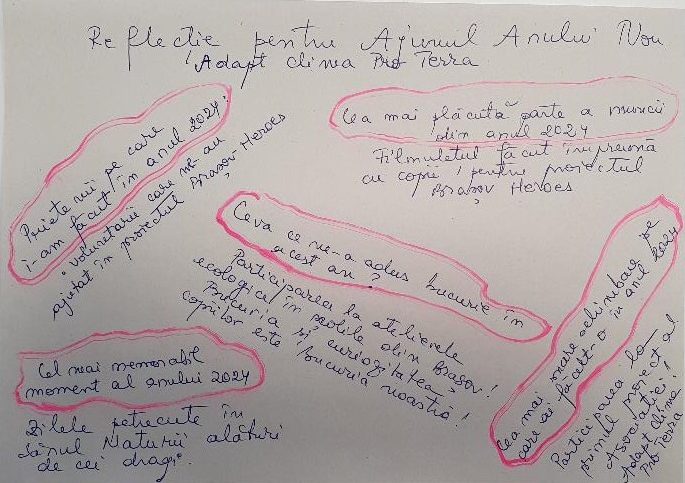 Reflecție pentru Ajunul Anului Nou
Adapt clima Pro Terra
Prietenii pe care
i-am făcut în anul 2024:
voluntarii care ne-au
ajutat în proiectul Brașov-Heroes
Cea mai plăcută parte a muncii
din anul 2024
Filmulețul făcut împreună
cu copii pentru proiectul
Brașov Heroes
Ceva ce ne-a adus bucurie în
acest an?
Participarea la atelierele
ecologice în școlile din Brașov!
Bucuria și curiozitatea
copiilor este bucuria noastră!
Cea mai mare schimbare pe
care ai făcut-o în anul 2024
Participarea la
primul proiect al
Asociației!
Adapt Clima
Pro Terra
Cel mai memorabil
moment al anului 2024
Zilele petrecute în
sânul Naturii alături
de cei dragi.